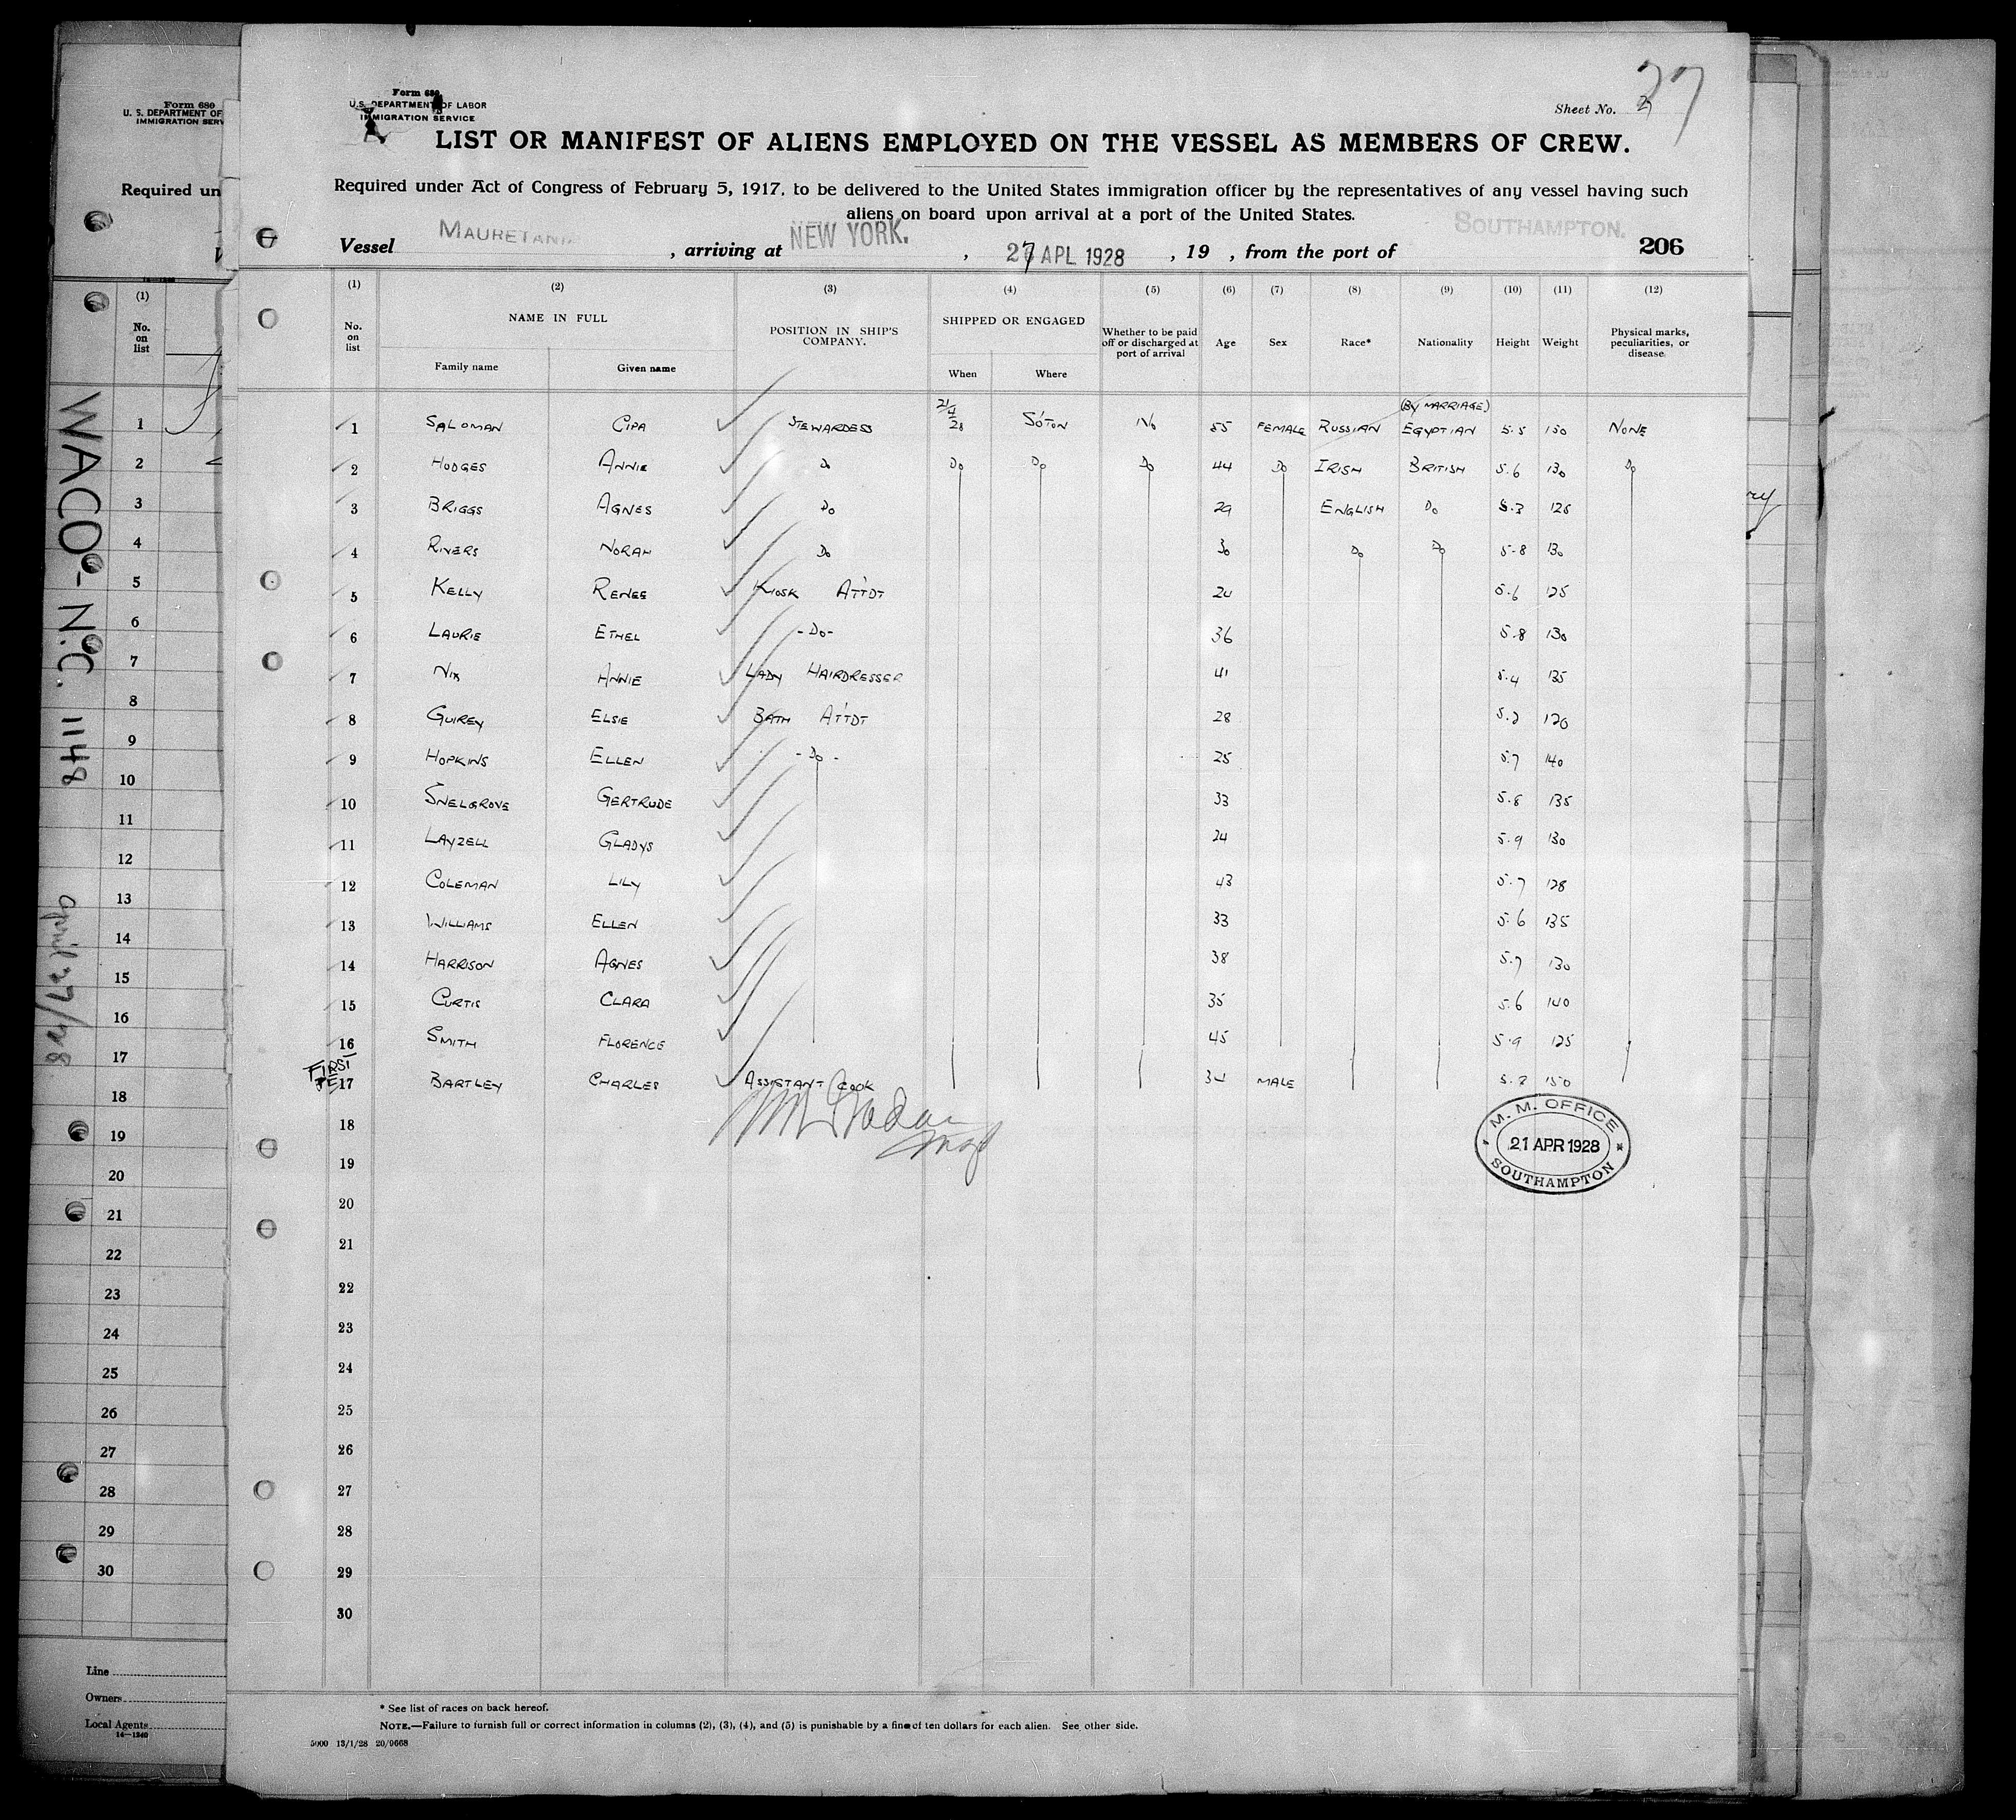 Form 680
U.S. DEPARTMENT OF LABOR
IMMIGRATION SERVICE
Sheet No.
27
LIST OR MANIFEST OF ALIENS EMPLOYED ON THE VESSEL AS MEMBERS OF CREW.
Required under Act of Congress of February 5, 1917, to be delivered to the United States immigration officer by the representatives of any vessel having such
aliens on board upon arrival at a port of the United States.
Vessel MAURETANIA, arriving at NEW YORK., 27 APL 1928, 19 , from the port of SOUTHAMPTON. 206
(1) (2) (3) (4) (5) (6) (7) (8) (9) (10) (11) (12)
No. on list NAME IN FULL POSITION IN SHIP'S COMPANY. SHIPPED OR ENGAGED Whether to be paid off or discharged at port of arrival Age Sex Race* Nationality Height Weight Physical marks, peculiarities, or disease.
Family name Given name When Where
1 SALOMAN CIPA STEWARDESS 21/4/28 SO'TON NO 55 FEMALE RUSSIAN (BY MARRIAGE) EGYPTIAN 5.5 150 NONE
2 HODGES ANNIE DO DO DO DO 44 DO IRISH BRITISH 5.6 130 DO
3 BRIGGS AGNES DO 29 ENGLISH DO 5.3 125
4 RIVERS NORAH DO 30 DO DO 5-8 130
5 KELLY RENEE KIOSK ATT'DT 5.6 125
6 LAURIE ETHEL -DO- 36 5.8 130
7 NIX ANNIE LADY HAIRDRESSER 41 5.4 135
8 GUIREY ELSIE BATH ATT'DT 28 5.2 120
9 HOPKINS ELLEN -DO- 25 5.7 140
10 SNELGROVE GERTRUDE 33 5.8 135
11 LAYZELL GLADYS 24 5.9 130
12 COLEMAN LILY 43 5.7 128
13 WILLIAMS ELLEN 33 5.6 135
14 HARRISON AGNES 38 5.7 130
15 CURTIS CLARA 35 5.6 140
16 SMITH FLORENCE 45 5.9 125
FIRST
17 BARTLEY CHARLES ASSISTANT COOK MALE 5.8 150
18
19
20
21
22
23
24
25
26
27
28
29
30
M. M. OFFICE
21 APR 1928
SOUTHAMPTON
* See list of races on back hereof.
NOTE.—Failure to furnish full or correct information in columns (2), (3), (4), and (5) is punishable by a fine of ten dollars for each alien. See other side.
5000 13/1/28 20/9668
Form 680
U. S. DEPARTMENT OF
IMMIGRATION SERV
Required un
(1)
No. on list
1
2
3
4
5
6
7
8
9
10
11
12
13
14
15
16
17
18
19
20
21
22
23
24
25
26
27
28
29
30
Line
Owners
Local Agents
14—1240
WACO - N.C. 1148
April 27/28
ry